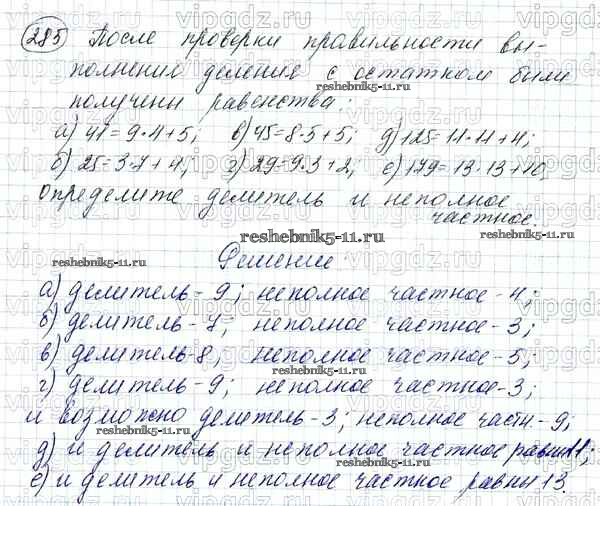 285 После проверки правильности вы-
полнению деления с остатком были
получены равенства:
а) 41=9·4+5; в) 45=8·5+5; д) 125=11·11+4;
б) 25=3·7+4; г) 29=9·3+2; е) 179=13·13+10
Определите делитель и неполное
частное.
reshebnik5-11.ru
Решение
а) делитель-9; неполное частное-4;
б) делитель-7; неполное частное-3;
в) делитель-8, неполное частное-5;
г) делитель-9; неполное частное-3;
и возможно делитель-3; неполное частн.-9;
д) и делитель и неполное частное равны 11;
е) и делитель и неполное частное равны 13.